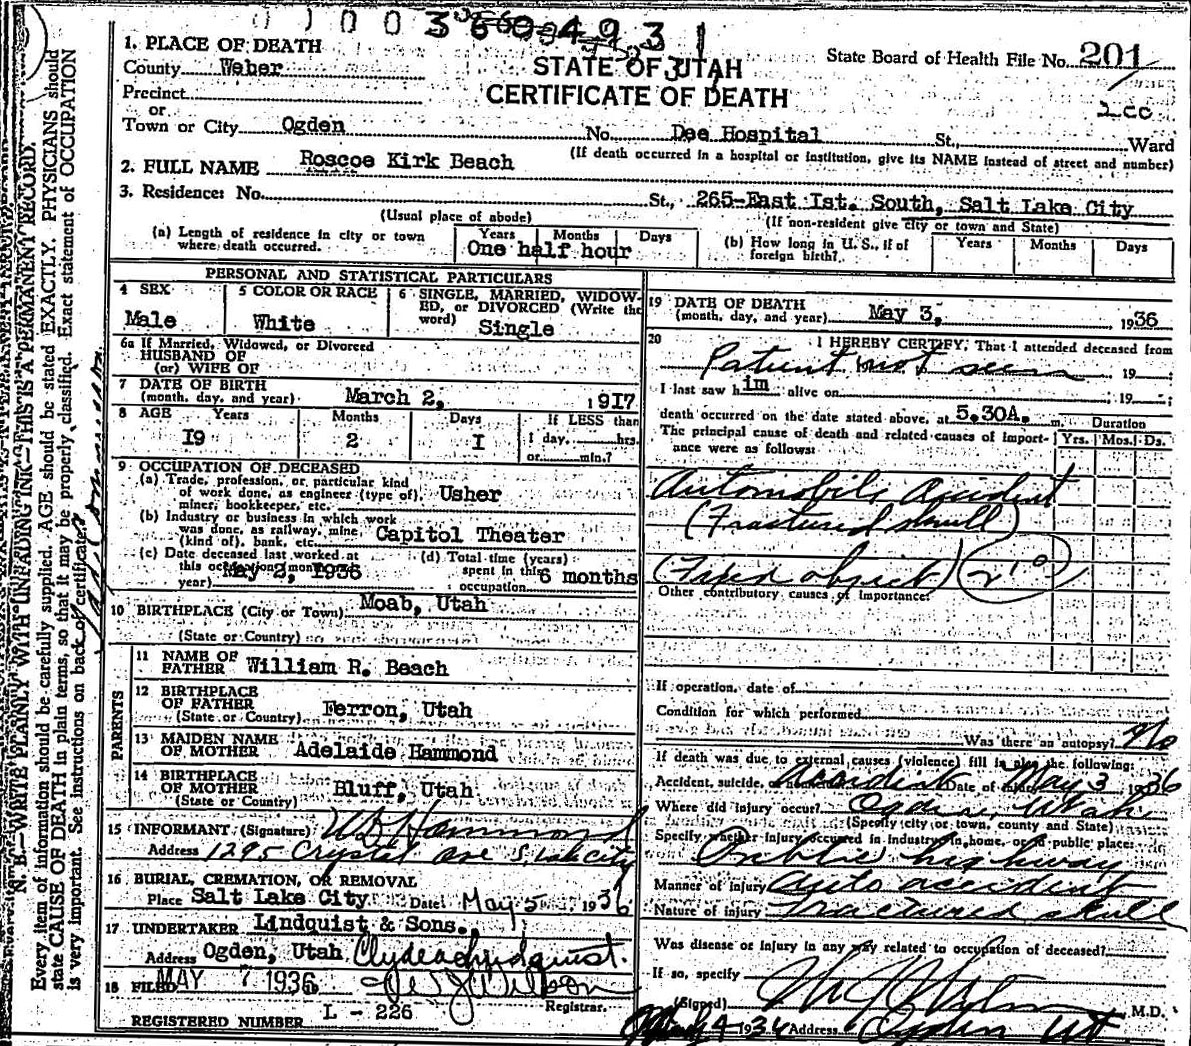 36 0 4 9 3 1
1. PLACE OF DEATH
State Board of Health File No. 201
County Weber
STATE OF UTAH
CERTIFICATE OF DEATH
Precinct
or
Town or City Ogden No. Dee Hospital St., Ward
(If death occurred in a hospital or institution, give its NAME instead of street and number)
2. FULL NAME Roscoe Kirk Beach
3. Residence: No. St., 265-East Ist. South, Salt Lake City
(Usual place of abode) (If non-resident give city or town and State)
(a) Length of residence in city or town where death occurred. Years Months Days
One half hour
(b) How long in U. S., if of foreign birth? Years Months Days
PERSONAL AND STATISTICAL PARTICULARS
4 SEX
Male
5 COLOR OR RACE
White
6 SINGLE, MARRIED, WIDOW-
ED, or DIVORCED (Write the
word) Single
6a If Married, Widowed, or Divorced
HUSBAND OF
(or) WIFE OF
7 DATE OF BIRTH
(month, day, and year) March 2, 1917
8 AGE Years Months Days If LESS than
I9 2 I 1 day, hrs.
or min.?
9 OCCUPATION OF DECEASED
(a) Trade, profession, or particular kind
of work done, as engineer (type of), Usher
miner, bookkeeper, etc.
(b) Industry or business in which work
was done, as railway, mine, Capitol Theater
(kind of), bank, etc.
(c) Date deceased last worked at
this occupation (month and
year) May 2, 1936
(d) Total time (years)
spent in this 6 months
occupation
10 BIRTHPLACE (City or Town) Moab, Utah
(State or Country)
PARENTS
11 NAME OF
FATHER William R. Beach
12 BIRTHPLACE
OF FATHER Ferron, Utah
(State or Country)
13 MAIDEN NAME
OF MOTHER Adelaide Hammond
14 BIRTHPLACE
OF MOTHER Bluff, Utah
(State or Country)
15 INFORMANT (Signature) W B Hammond
Address 1295 Crystal Ave S. Lake City
16 BURIAL, CREMATION, OR REMOVAL
Place Salt Lake City Date May 5 1936
17 UNDERTAKER Lindquist & Sons.
Address Ogden, Utah Clyde Lindquist.
18 FILED MAY 7 1936
Registrar.
REGISTERED NUMBER L - 226
19 DATE OF DEATH
(month, day, and year) May 3, 1936
20 I HEREBY CERTIFY, That I attended deceased from
Patient not seen 19
I last saw him alive on 19
death occurred on the date stated above, at 5.30A. m.
The principal cause of death and related causes of import-
ance were as follows:
Duration
Yrs. Mos. Ds.
Automobile Accident
(Fractured skull)
(Fixed object) 210
Other contributory causes of importance:
If operation, date of
Condition for which performed
Was there an autopsy? No
If death was due to external causes (violence) fill in also the following:
Accident, suicide, or homicide Accident Date of injury May 3 1936
Where did injury occur? Ogden, Utah
(Specify city or town, county and State)
Specify whether injury occurred in industry, in home, or in public place:
Public highway
Manner of injury Auto accident
Nature of injury Fractured skull
Was disease or injury in any way related to occupation of deceased?
If so, specify
(Signed) M.D.
May 4 1936 Address Ogden Ut
N. B.—WRITE PLAINLY WITH UNFADING INK—THIS IS A PERMANENT RECORD.
Every item of information should be carefully supplied. AGE should be stated EXACTLY. PHYSICIANS should
state CAUSE OF DEATH in plain terms, so that it may be properly classified. Exact statement of OCCUPATION
is very important. See instructions on back of certificate.